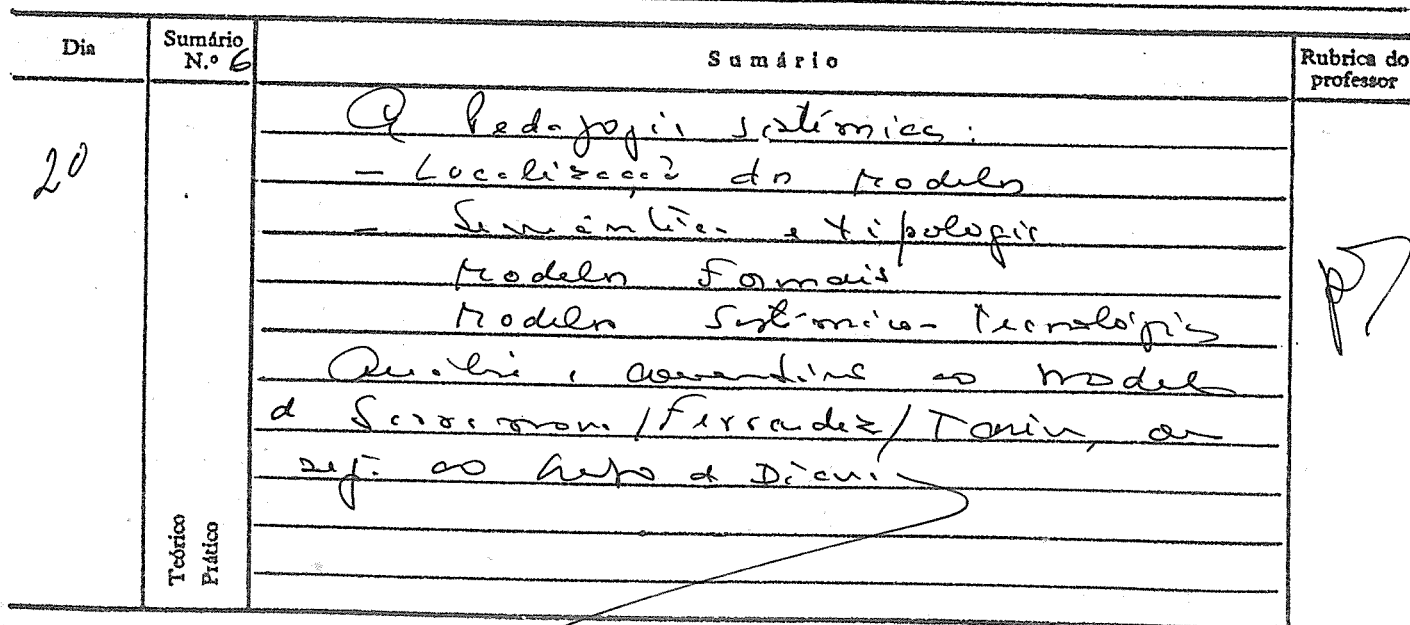 Dia
Sumário N.º 6
Sumário
Rubrica do professor
20
A Pedagogia sistémica:
- Localização do Modelo
- Semântica e tipologia
Modelos Formais
Modelos Sistémico-Tecnológico
Análise e comentário ao modelo
d Sarramona/Ferrandez/Tarin, ou
seja ao Grupo d
Teórico
Prático